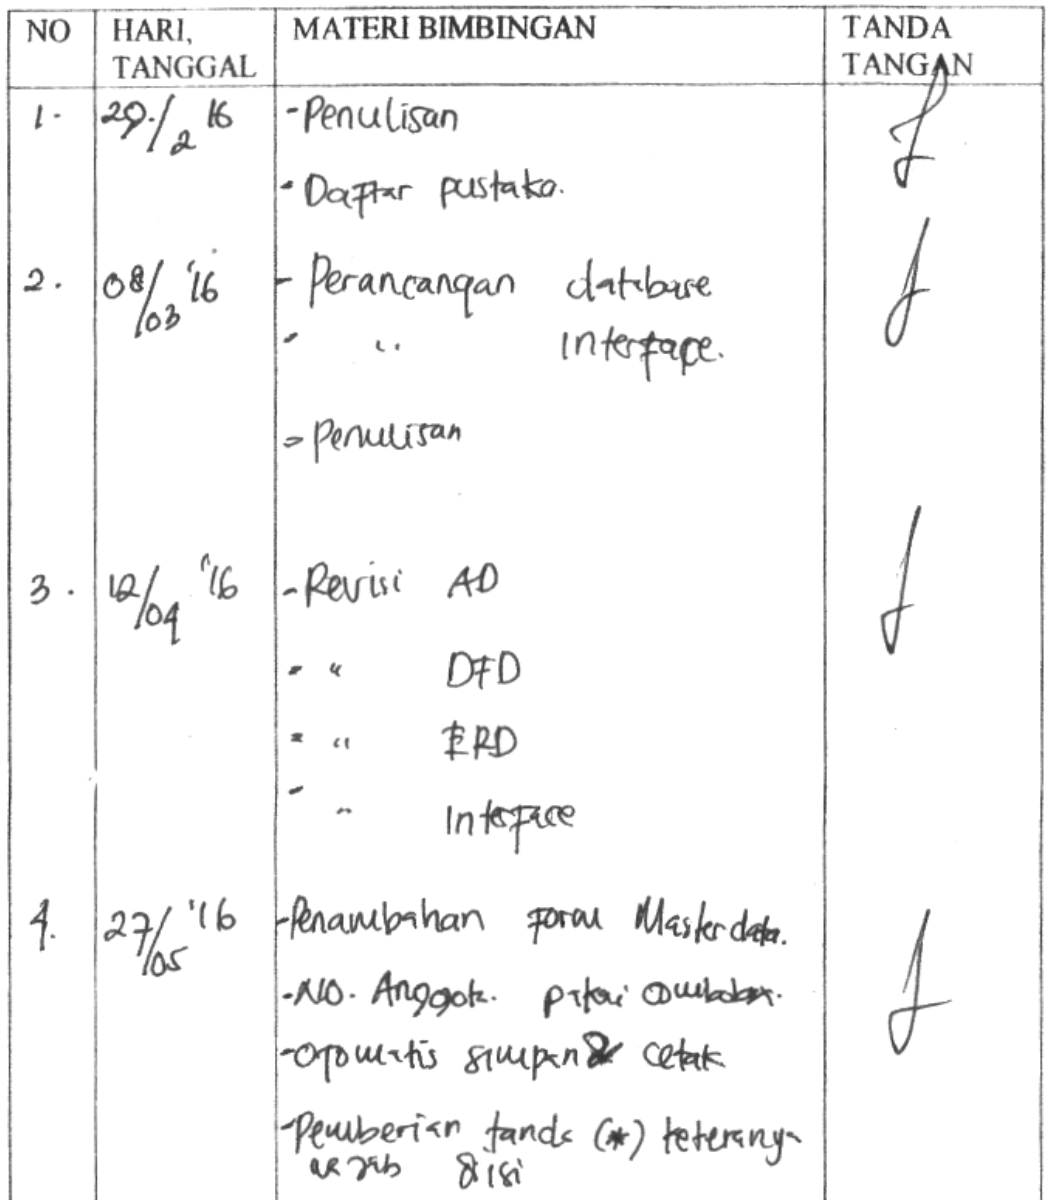 NO HARI, MATERI BIMBINGAN TANDA
TANGGAL TANGAN
1. 29/2 16 - Penulisan
- Daftar pustaka.
2. 08/03 '16 - Perancangan database
- " interface.
- Penulisan
3. 12/04 '16 - Revisi AD
- " DFD
- " ERD
- " Interface
4. 27/05 '16 - Penambahan form Master data.
- NO. Anggota. pakai
- Otomatis simpan & cetak
- Pemberian tanda (*)
diisi